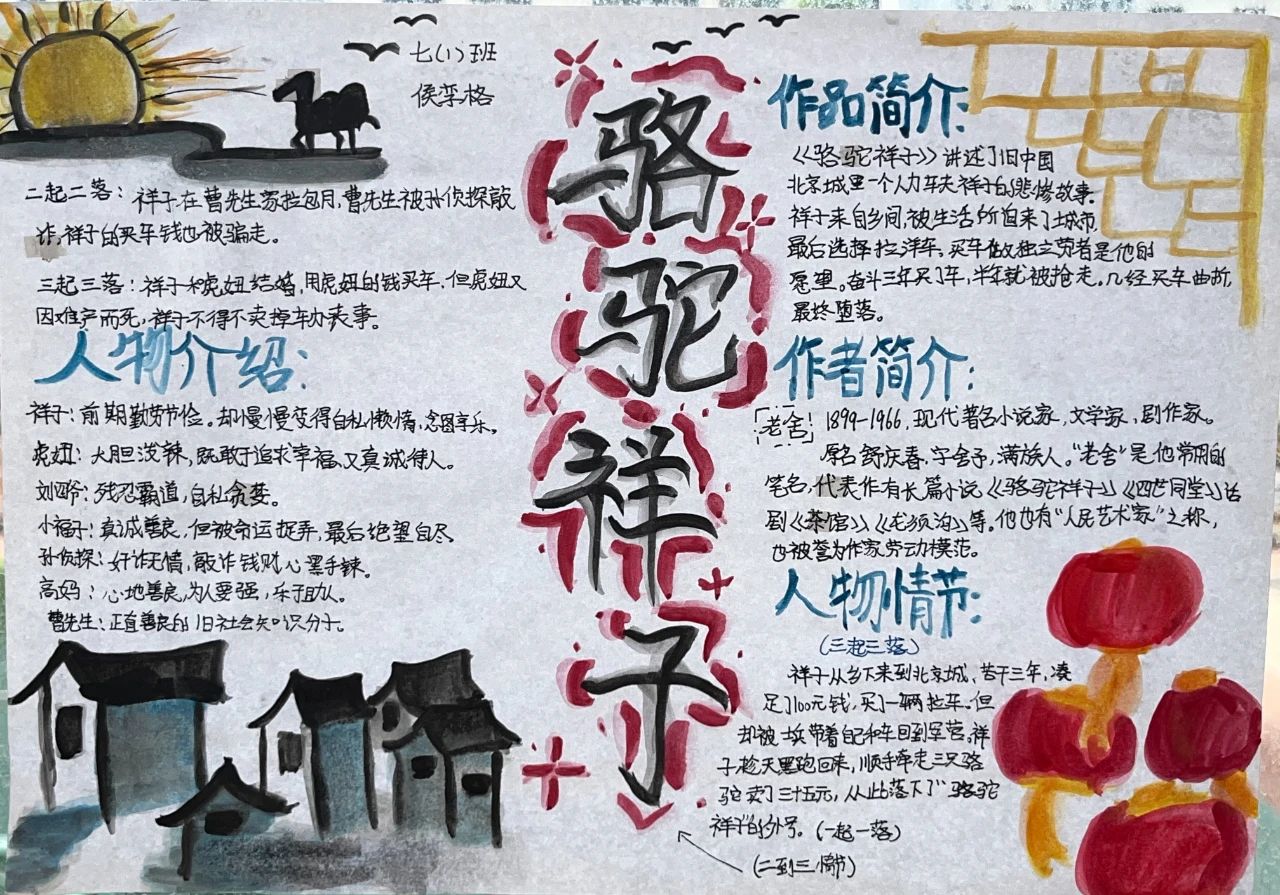 七(1)班
侯栾格
骆驼祥子
作品简介:
《骆驼祥子》讲述了旧中国
北京城里一个人力车夫祥子的悲惨故事.
祥子来自乡间,被生活所迫来了城市,
最后选择拉洋车。买车做独立劳者是他的
愿望。奋斗三年买了车,半年就被抢走。几经买车曲折,
最终堕落。
作者简介:
「老舍」1899-1966,现代著名小说家,文学家,剧作家。
原名舒庆春,字舍予,满族人。"老舍"是他常用的
笔名,代表作有长篇小说《骆驼祥子》《四世同堂》话
剧《茶馆》《龙须沟》等。他也有"人民艺术家"之称,
也被誉为作家劳动模范。
人物情节:
(三起三落)
祥子从乡下来到北京城,苦干三年,凑
足了100元钱,买了一辆拉车.但
却被士兵带着自己和车回到军营。祥
子趁天黑跑回来,顺手牵走三只骆
驼卖了三十五元,从此落下了"骆驼
祥子"的外号。(一起一落)
(二到三情节)
二起二落:祥子在曹先生家拉包月,曹先生被孙侦探敲
诈,祥子的买车钱也被骗走。
三起三落:祥子和虎妞结婚,用虎妞的钱买车,但虎妞又
因难产而死,祥子不得不卖掉车办丧事。
人物介绍:
祥子:前期勤劳节俭。却慢慢变得自私懒惰,念图享乐。
虎妞:大胆泼辣,既敢于追求幸福,又真诚待人。
刘四爷:残忍霸道,自私贪婪。
小福子:真诚善良,但被命运捉弄,最后绝望自尽
孙侦探:奸诈无情,敲诈钱财,心黑手辣。
高妈:心地善良,为人要强,乐于助人。
曹先生:正直善良的旧社会知识分子。